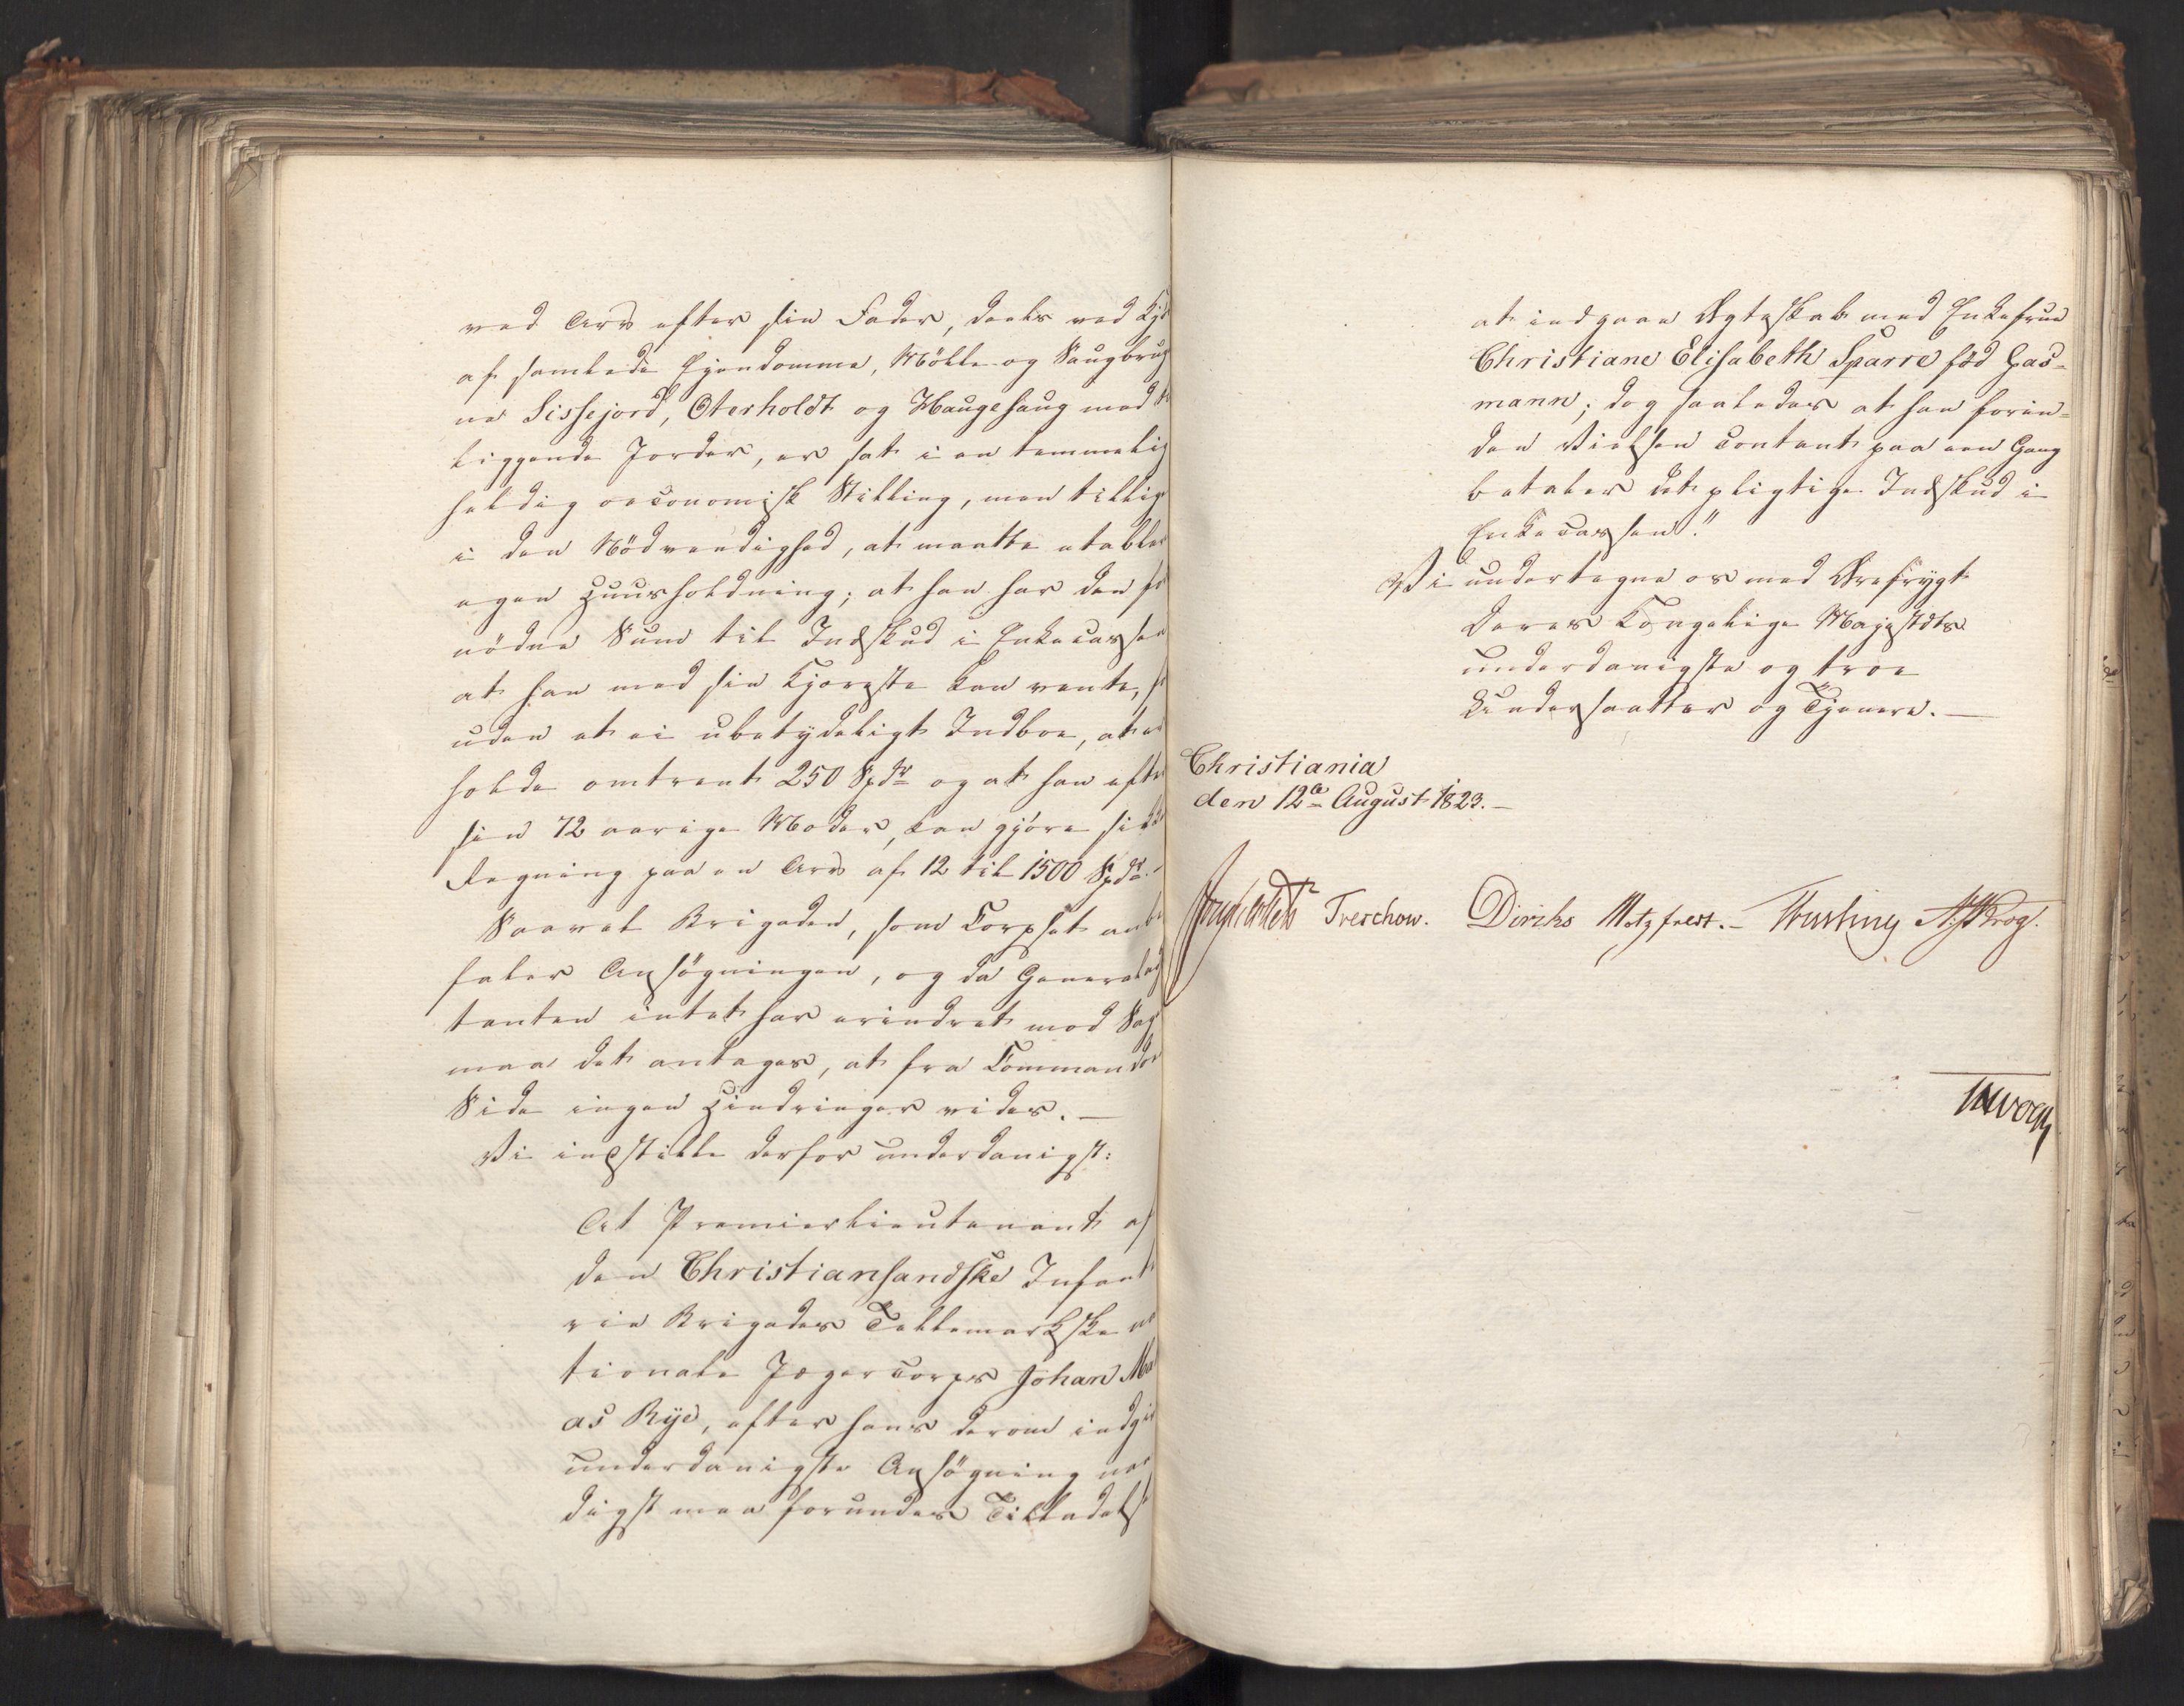 ved Arv efter sin Fader, deels ved Kjø
af samlede Ejendomme, Mölle og Saugbrug
ne Sissejord, Oterholdt og Haugehaug med
liggende Jorder, er sat i en temmelig
heldig oeconomisk Stilling, men tillige
i den Nödvendighed, at maatte etablere
egen Huusholdning; at han har den for
nödne Sum til Indskud i Enkecassen
at han med sin Kjæreste kan vente,
uden et ei ubetydeligt Indboe, at er
holde omtrent 250 Spdr og at han efter
sin 72 aarige Moder, kan gjöre sikker
Regning paa en Arv af 12 til 1500 Spdr.
Saavel Brigaden, som Corpset anbe
faler Ansögningen, og da Generaladj
tanten intet har erindret mod Sag
maa det antages, at fra Commando
Side ingen Hindringer vides. —
Vi indstille derfor underdanigst:
At Premierlieutenant af
den Christiansandske Infant
rie Brigades Tellemarkske na
tionale Jægercorps Johan Ma
as Rye, efter hans derom indgiv
underdanigste Ansögning naa
digst maa forundes Tilladelse
at indgaae Ægteskab med Enkefrue
Christiane Elisabeth Sparre född Gas-
mann; dog saaledes at han foren-
den Vielsen contant paa een Gang
betaler det pligtige Indskud i
Enkecassen."
Vi undertegne os med Ærefrygt
Deres Kongelige Majestæts
underdanigste og troe
Undersaatter og Tjenere. —
Christiania
den 12te August 1823. —
Treschow. Diriks Motzfeldt. — Fasting Krog.
Vogt